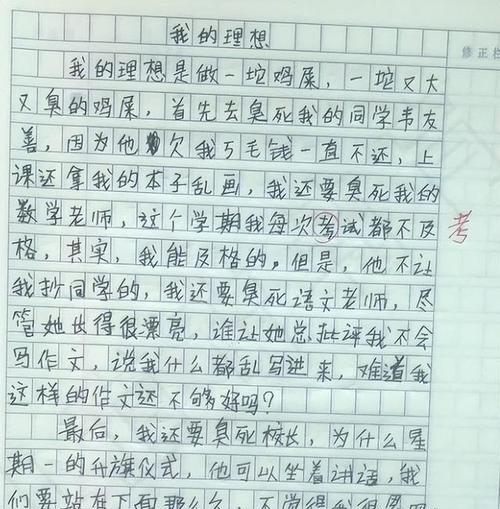 我的理想
修正栏
我的理想是做一坨鸡屎，一坨又大
又臭的鸡屎，首先去臭死我的同学韦友
善，因为他欠我5毛钱一直不还，上
课还拿我的本子乱画，我还要臭死我的
数学老师，这个学期我每次考试都不及
考
格，其实，我能及格的，但是，他不让
我抄同学的，我还要臭死语文老师，尽
管她长得很漂亮，谁让她总批评我不会
写作文，说我什么都乱写进来，难道我
这样的作文还不够好吗？
最后，我还要臭死校长，为什么星
期一的升旗仪式，他可以坐着讲话，我
们要站在下面那么久，不觉得我很